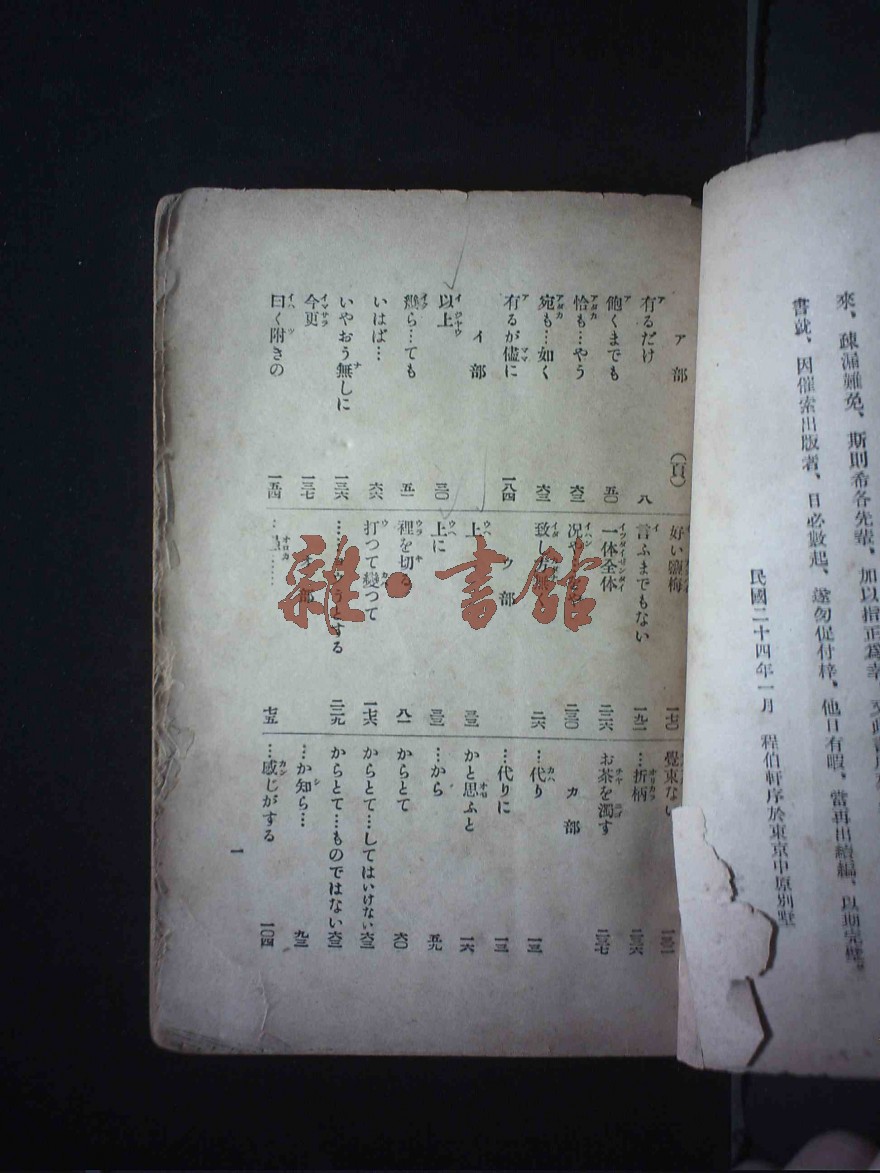 來、疎漏難免、斯則希各先輩、加以指正爲幸、
書就、因催索出版者、日必數起、遂匆促付梓、他日有暇、當再出續編、以期完璧。
民國二十四年一月　程伯軒序於東京中原別墅
ア部　(頁)
有るだけ　八
飽くまでも　五〇
恰も…やう　六三
宛も…如く　六三
有るが儘に　一八四
イ部
以上　三〇
幾ら…ても　五一
いはば…　六六
いやおう無しに　一三六
今更　一三七
曰く附きの　一五四
好い鹽梅　一七〇
言ふまでもない　一九一
一体全体　二二六
況や　二三〇
致し方無　二六
ウ部
上　三三
上に　三三
裡を切る　八一
打つて變つて　一七六
うとする　二三九
部
…　七五
覺束ない
…折柄　二三六
お茶を濁す　二三七
カ部
…代り　一三
…代りに　一三
かと思ふと　一六
…から　五九
からとて　六〇
からとて…してはいけない　六三
からとて…ものではない　六三
…か知ら…　九三
…感じがする　一〇四
一
雜·書館